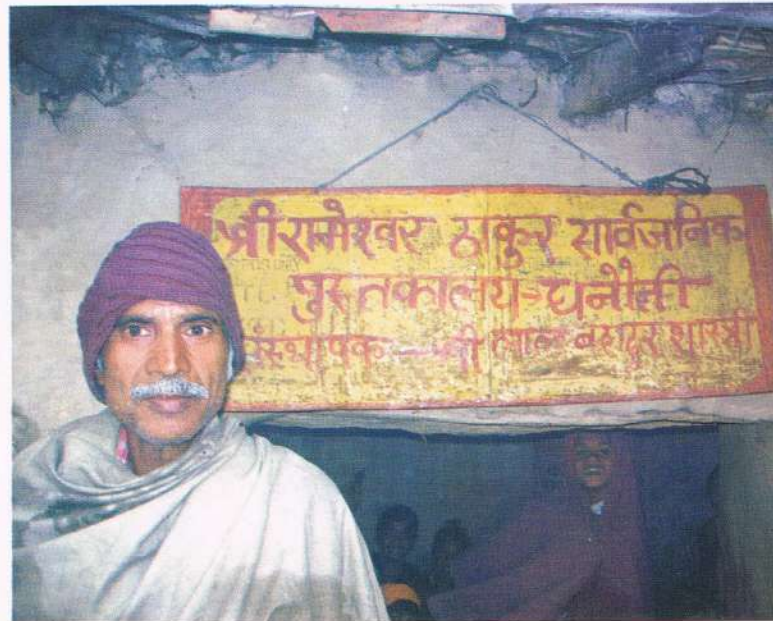 श्री रामेश्वर ठाकुर सार्वजनिक
पुस्तकालय धनौती
संस्थापक — श्री लाल बहादुर शास्त्री